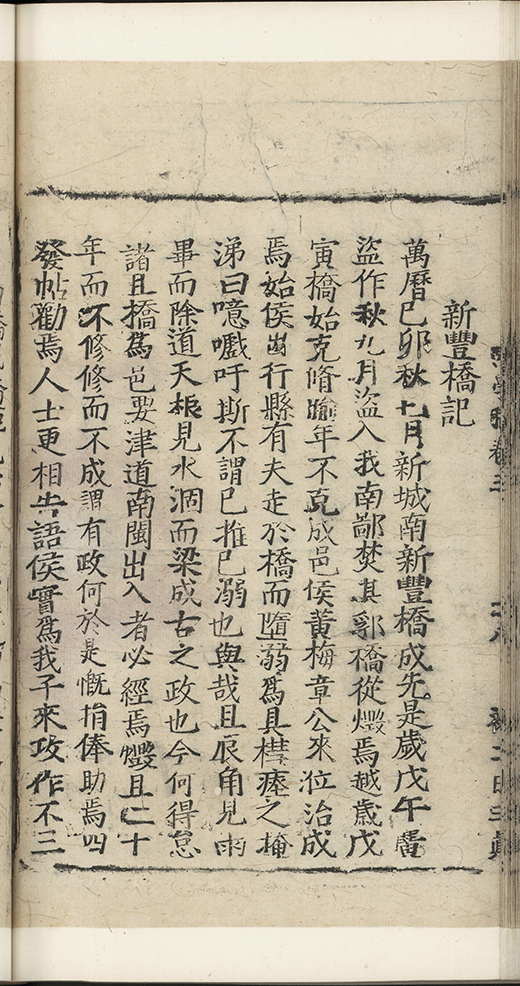 新豐橋記
萬曆己卯秋七月新城南新豐橋成先是歲戊午廣
盜作秋九月盜入我南鄙焚其郛橋從燬焉越歲戊
寅橋始克脩踰年不克成邑侯黃梅章公來涖治成
焉始侯出行縣有夫走於橋而墮溺為具槥瘞之掩
涕曰噫嚱吁斯不謂已推已溺也與哉且辰角見雨
畢而除道天根見水涸而梁成古之政也今何得怠
諸且橋為邑要津道南閩出入者必經焉燬且二十
年而不修修而不成謂有政何於是慨捐俸助焉四
發帖勸焉人士更相告語侯實為我子來攻作不三
卷三